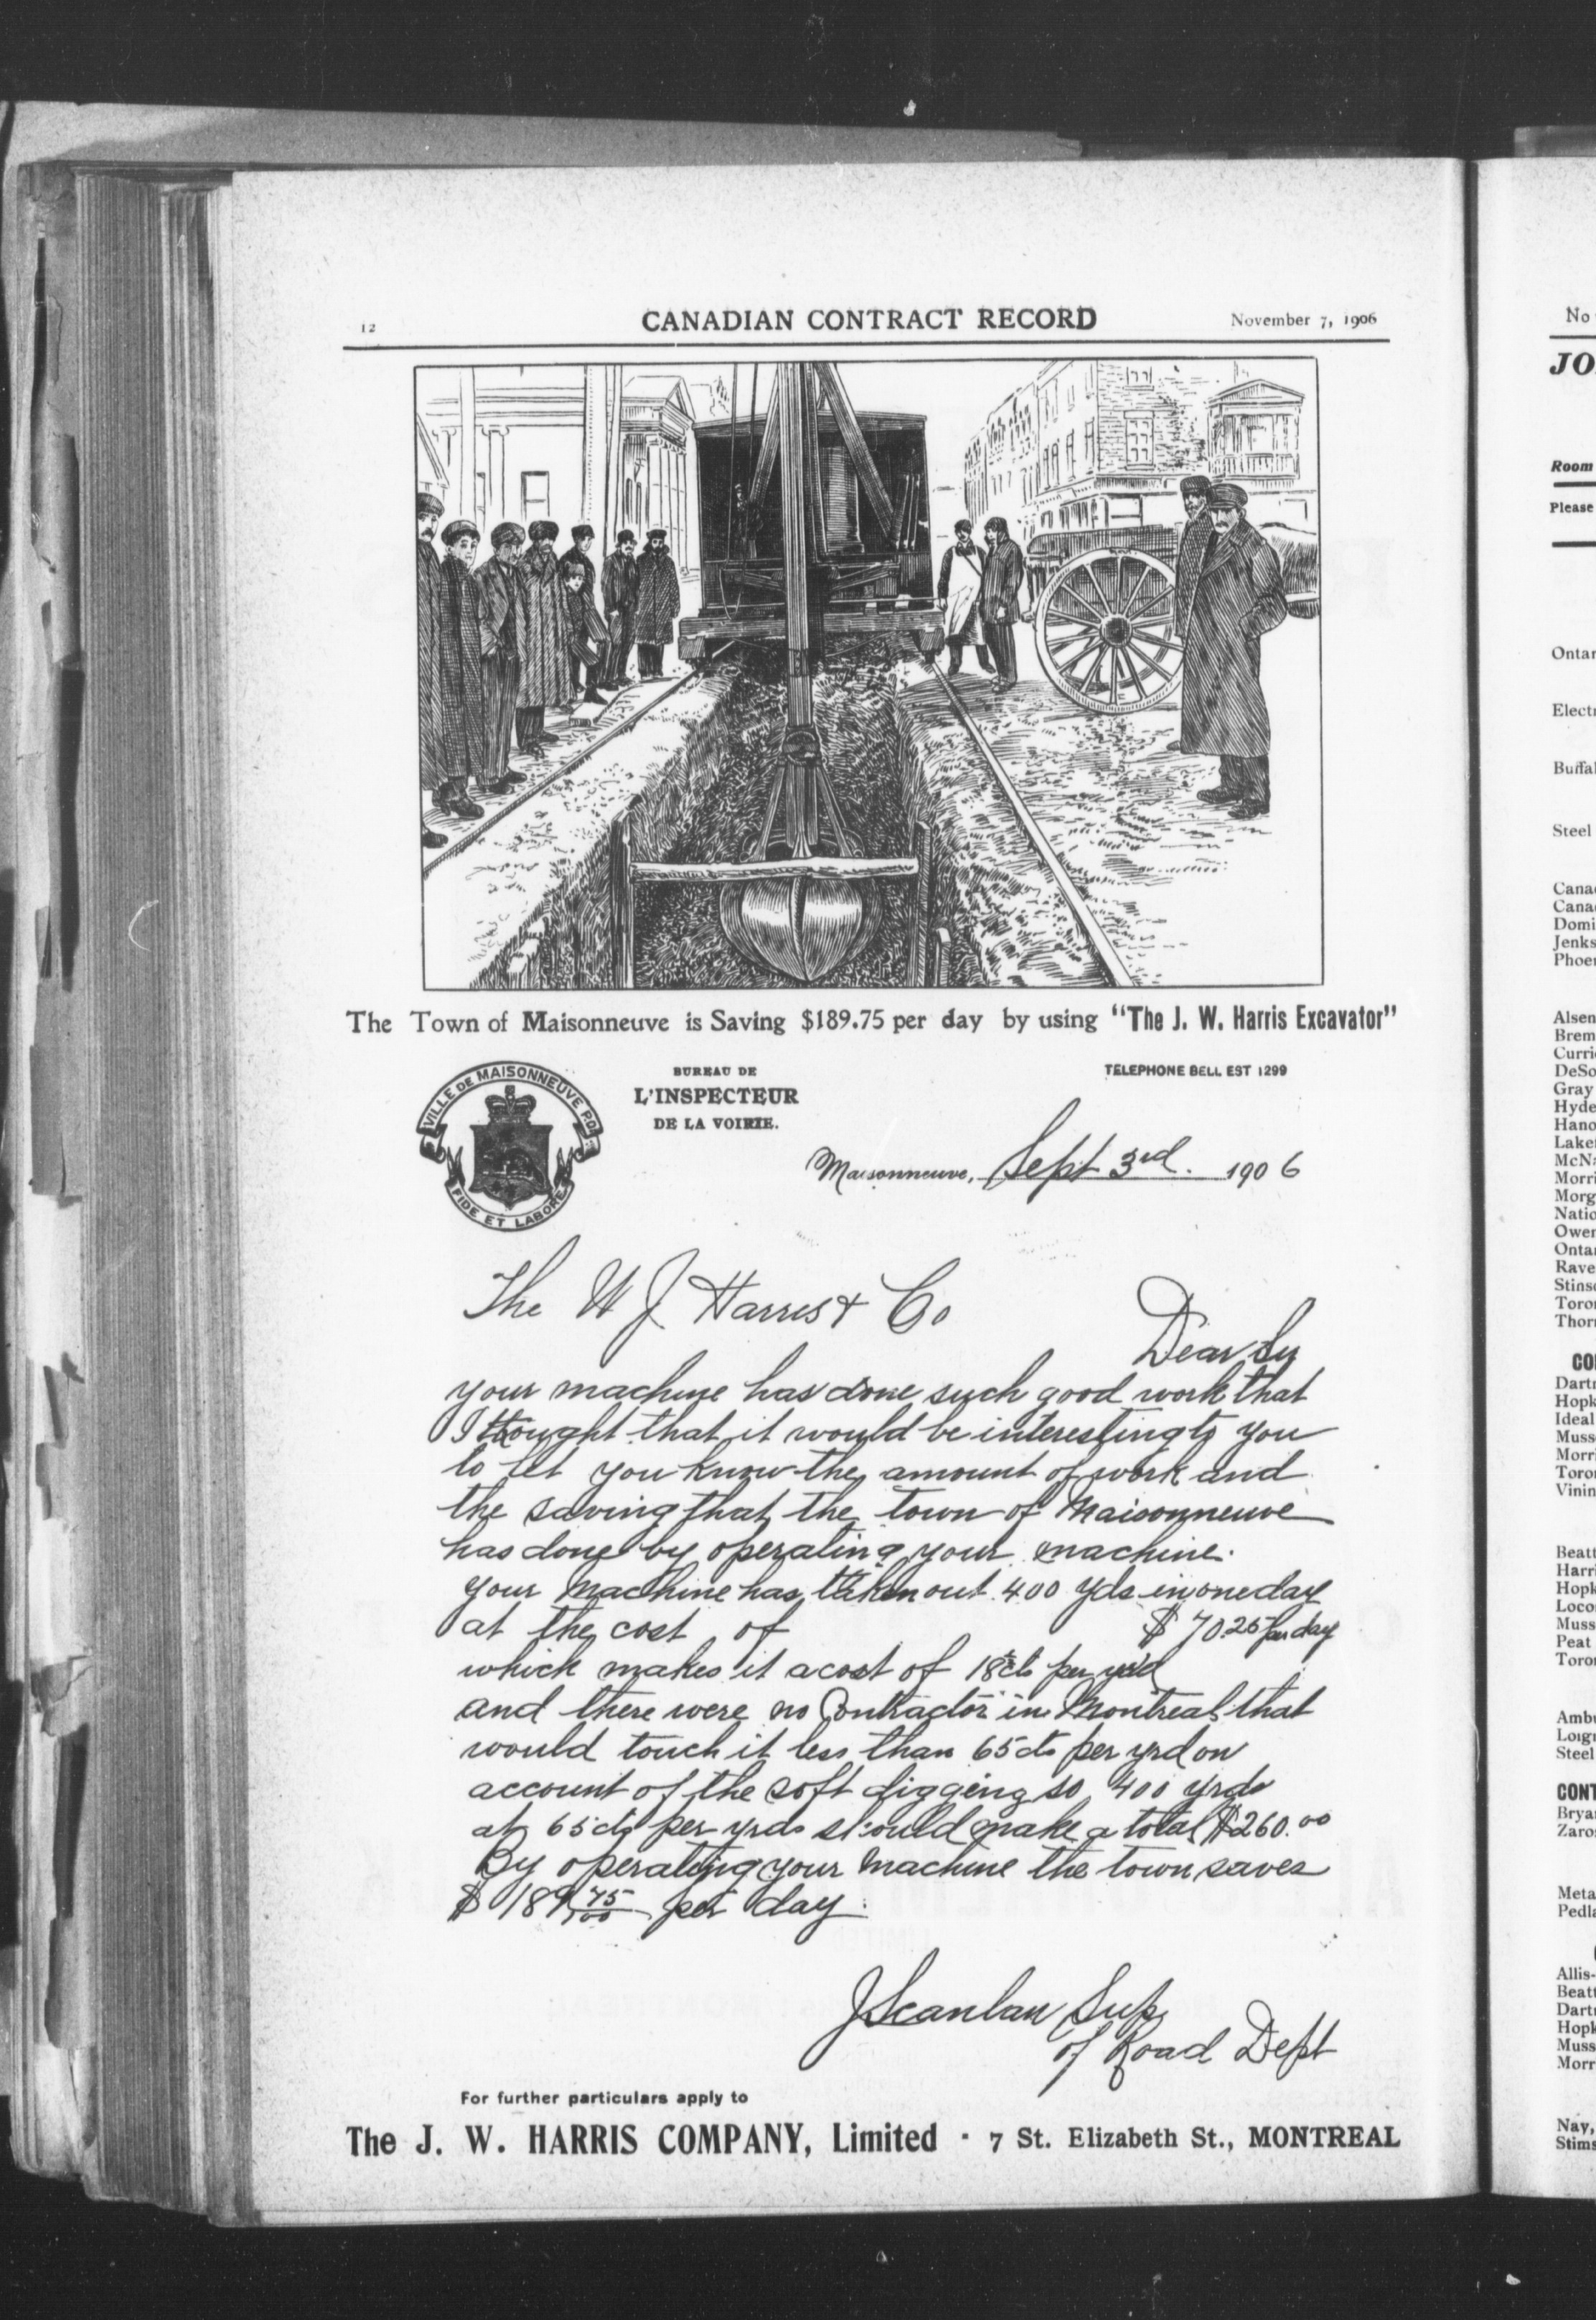 12
CANADIAN CONTRACT RECORD
November 7, 1906
The Town of Maisonneuve is Saving $189.75 per day by using "The J. W. Harris Excavator"
VILLE DE MAISONNEUVE P.Q.
FIDE ET LABORE
BUREAU DE
L'INSPECTEUR
DE LA VOIRIE.
TELEPHONE BELL EST 1299
Maisonneuve, Sept 3rd. 1906
The W J Harris & Co
Dear Sir
your machine has done such good work that
I thought that it would be interesting to you
to let you know the amount of work and
the saving that the town of Maisonneuve
has done by operating your machine.
your machine has taken out 400 yds in one day
at the cost of $70.25 per day
which makes it a cost of 18 cts per yrd
and there were no Contractor in Montreal that
would touch it less than 65 cts per yrd on
account of the soft digging so 400 yrds
at 65 cts per yrds should make a total $260.00
By operating your machine the town saves
$189 75/100 per day.
J Scanlan Sup.
of Road Dept
For further particulars apply to
The J. W. HARRIS COMPANY, Limited - 7 St. Elizabeth St., MONTREAL
No
JO
Room
Please
Ontar
Electr
Buffal
Steel
Cana
Cana
Domi
Jenks
Phoe
Alsen
Brem
Curri
DeSo
Gray
Hyde
Hano
Lake
McNa
Morri
Morg
Natio
Owen
Ontar
Rave
Stins
Toro
Thor
CO
Dart
Hopk
Ideal
Muss
Morr
Toro
Vinin
Beatt
Harri
Hopk
Loco
Muss
Peat
Toro
Amb
Loign
Steel
CONT
Brya
Zaro
Meta
Pedla
Allis-
Beatt
Dart
Hopk
Muss
Morr
Nay,
Stims